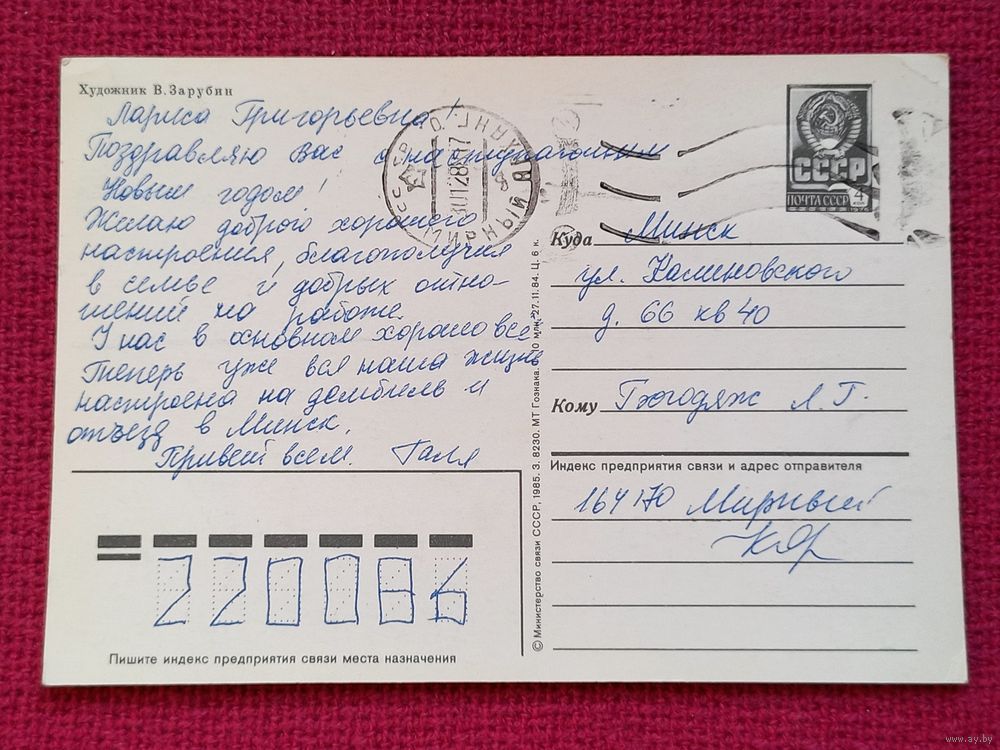 Художник В. Зарубин
Лариса Григорьевна!
Поздравляю Вас с наступающим
Новым годом!
Желаю доброй хорошего
настроения, благополучия
в семье и добрых отно-
шений на работе.
У нас в основном хорошо все.
Теперь уже вся наша жизнь
настроена на дембиль и
отъезд в Минск.
Привет всем. Галя
СССР
ПОЧТА СССР
4
1976
Куда Минск
ул. Калиновского
д. 66 кв 40
Кому Л. Г.
Индекс предприятия связи и адрес отправителя
164170 Мирный
220086
Пишите индекс предприятия связи места назначения
© Министерство связи СССР, 1985. З. 8230. МТ Гознака. млн. 27.11.84. Ц. 6 к.
www.ay.by